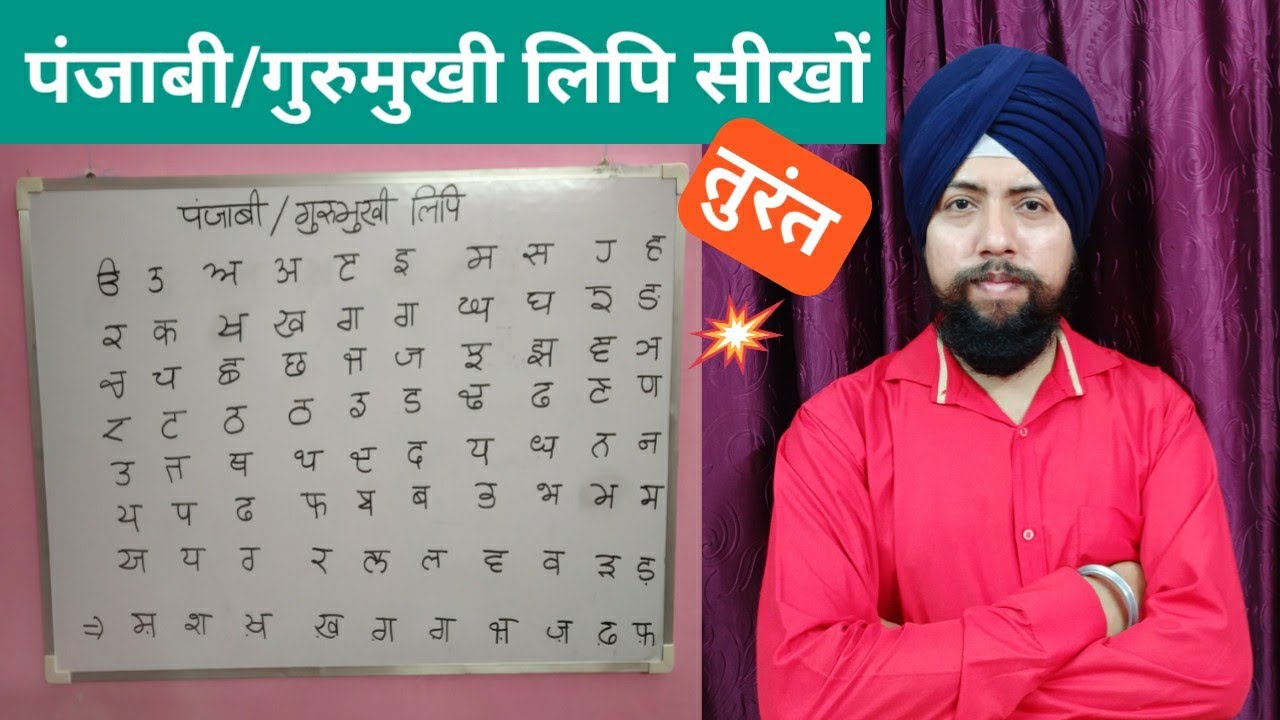 पंजाबी/गुरुमुखी लिपि सीखों
तुरंत
पंजाबी/गुरुमुखी लिपि
ੳ उ ਅ अ ੲ इ ਸ स ਹ ह
ਕ क ਖ ख ਗ ग ਘ घ ਙ ङ
ਚ च ਛ छ ਜ ज ਝ झ ਞ ञ
ਟ ट ਠ ठ ਡ ड ਢ ढ ਣ ण
ਤ त ਥ थ ਦ द ਧ ध ਨ न
ਪ प ਫ फ ਬ ब ਭ भ ਮ म
ਯ य ਰ र ਲ ल ਵ व ੜ ड़
⇒ ਸ਼ श ਖ਼ ख़ ਗ਼ ग़ ਜ਼ ज़ ਫ਼ फ़